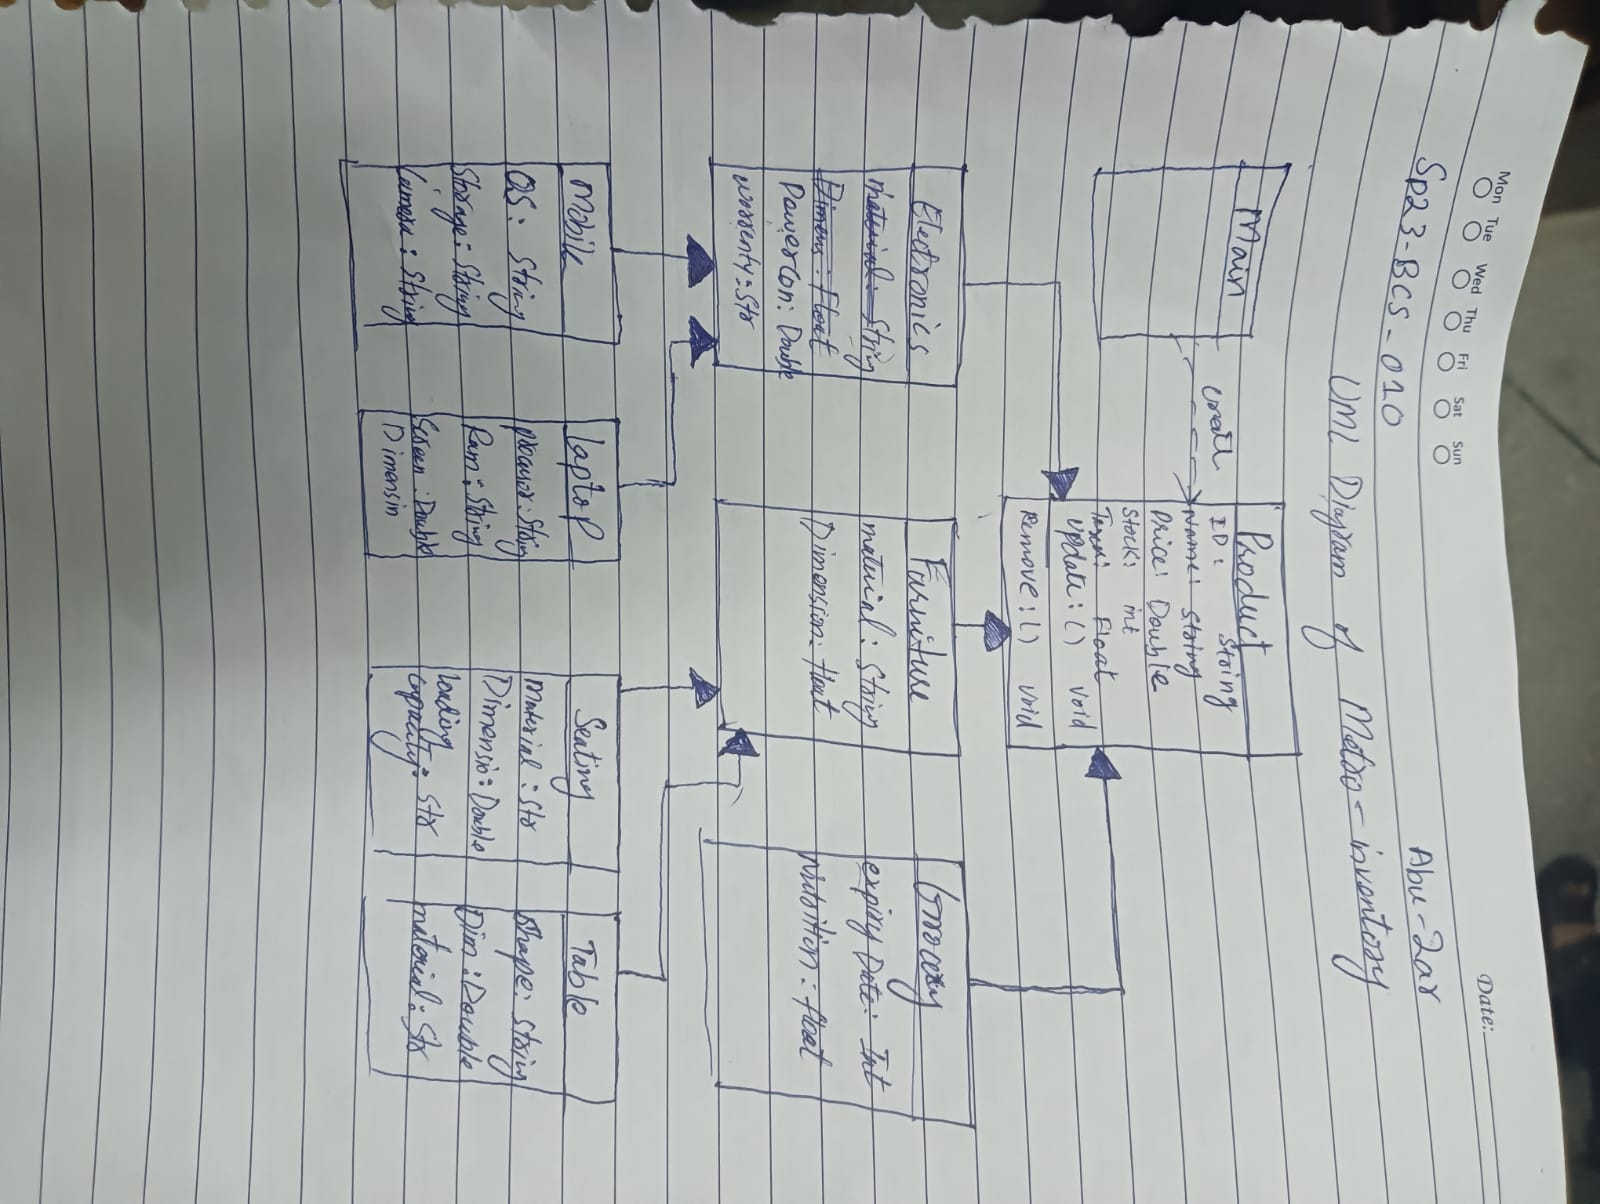 Mon Tue Wed Thu Fri Sat Sun
Date:
Sp23-BCS-010
Abu-Zar
UML Diagram of Metro-inventory
Main
creat
Product
ID: String
Name: String
Price: Double
Stock: int
Float
Update:() Void
Remove:() Void
Electronics
material: String
Dimens: Float
PowerCon: Double
worrenty: Str
Furniture
material: String
Dimension: float
Grocery
expiry Date: Int
Nutrition: float
Mobile
OS: String
Storage: String
Camera: String
Laptop
: String
Ram: String
Screen: Double
Dimensin
Seating
Material: Str
Dimensio: Double
Loading
capacity: Str
Table
Shape: String
Dim: Double
material: Str